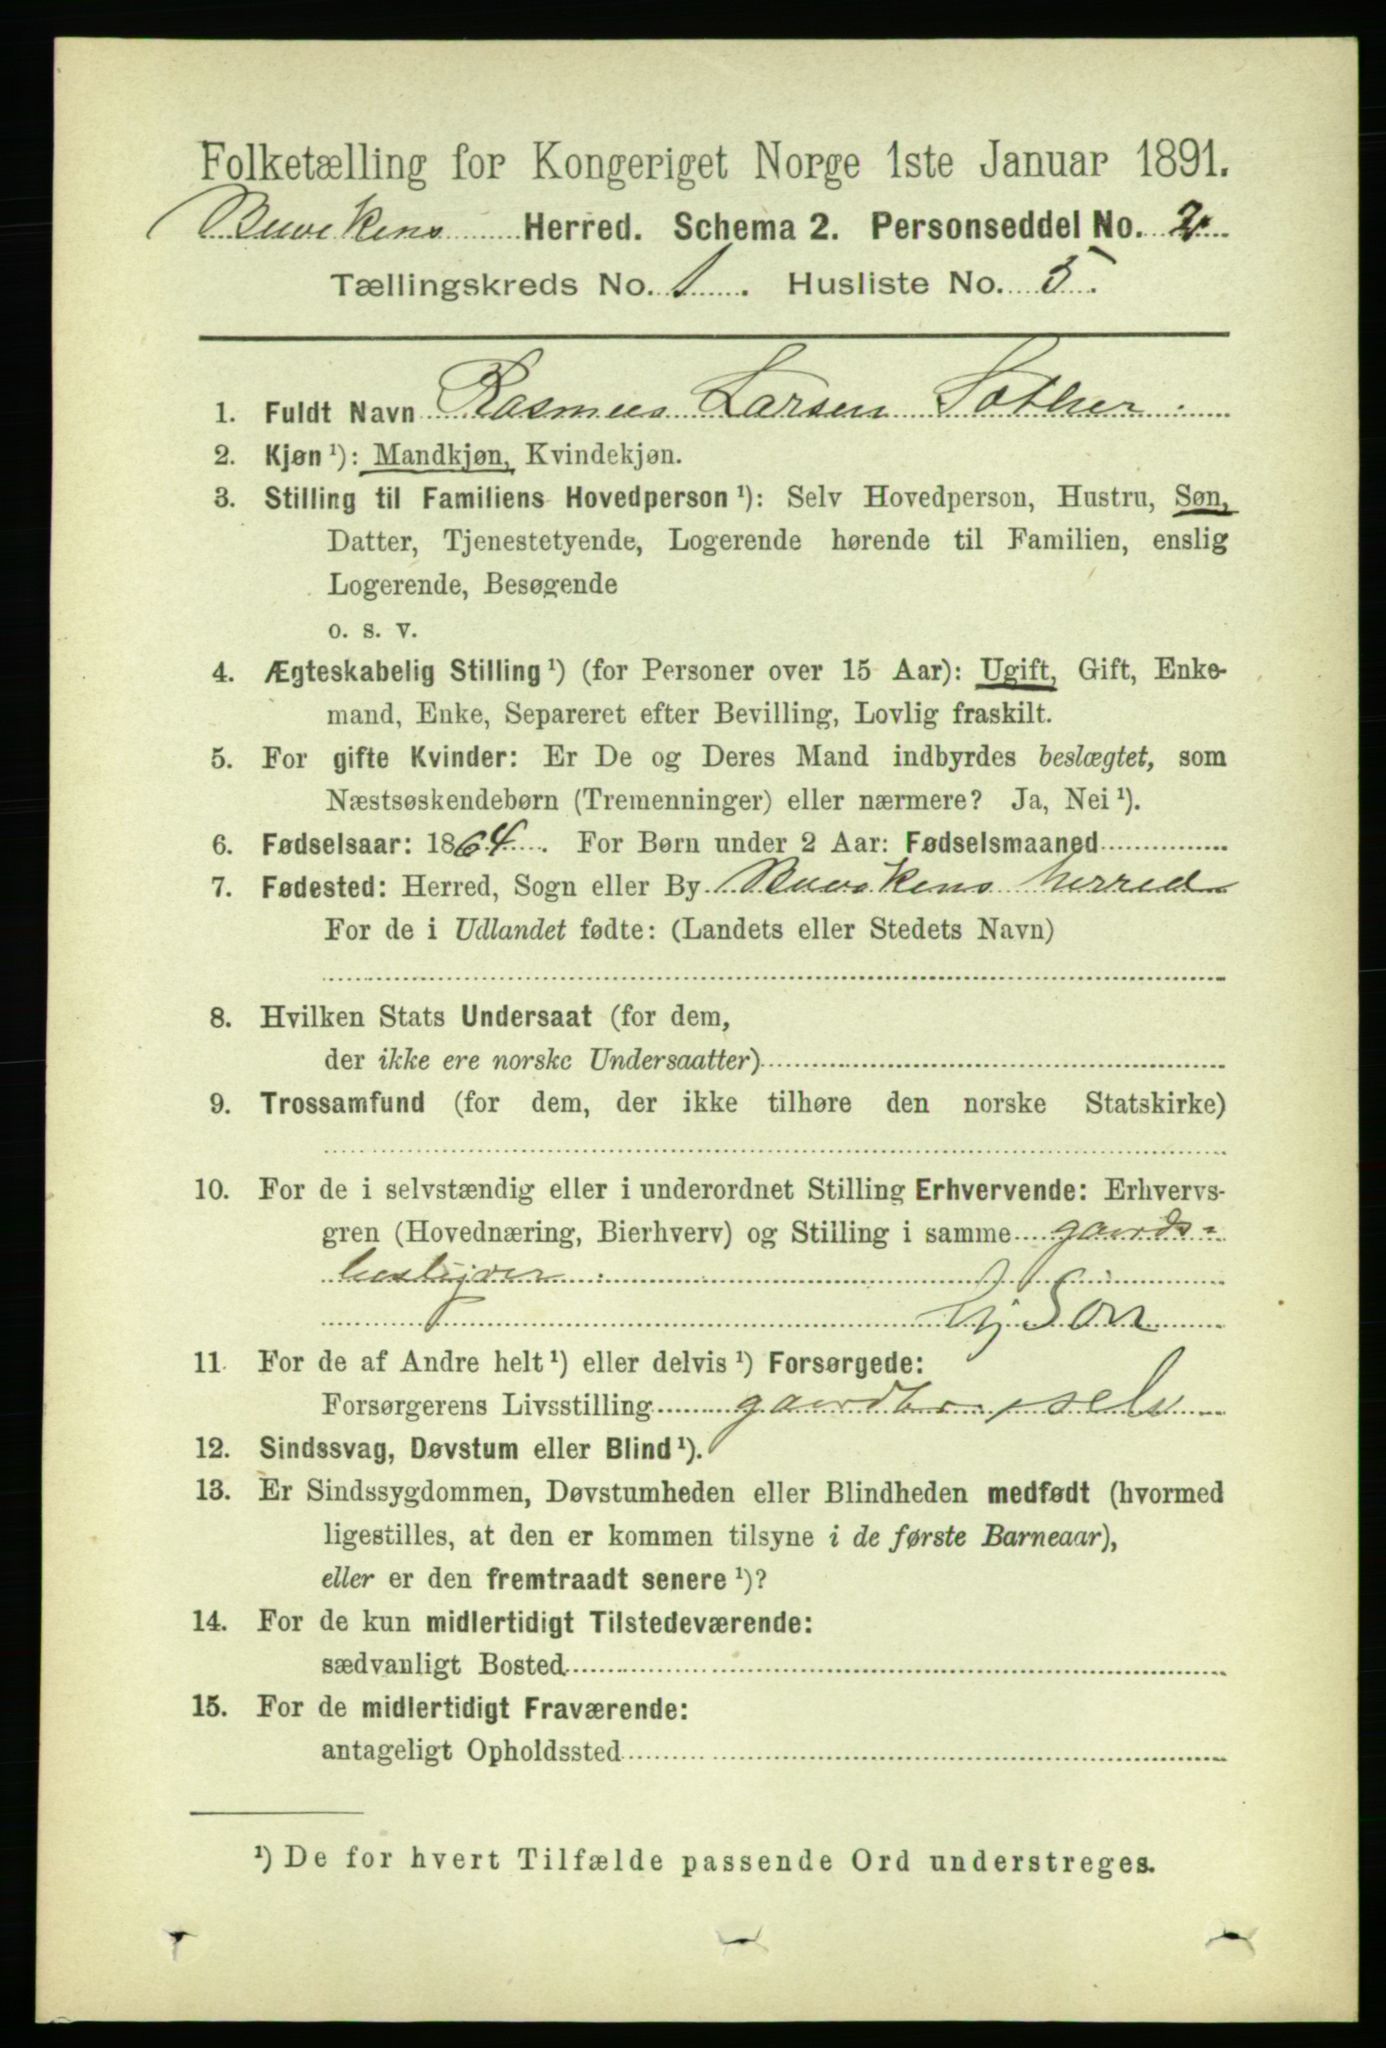 Folketælling for Kongeriget Norge 1ste Januar 1891.
Buvikens Herred. Schema 2. Personseddel No. 2.
Tællingskreds No. 1. Husliste No. 5.
1. Fuldt Navn Rasmus Larsen Sæther.
2. Kjøn ¹): Mandkjøn, Kvindekjøn.
3. Stilling til Familiens Hovedperson ¹): Selv Hovedperson, Hustru, Søn,
Datter, Tjenestetyende, Logerende hørende til Familien, enslig
Logerende, Besøgende
o. s. v.
4. Ægteskabelig Stilling ¹) (for Personer over 15 Aar): Ugift, Gift, Enke-
mand, Enke, Separeret efter Bevilling, Lovlig fraskilt.
5. For gifte Kvinder: Er De og Deres Mand indbyrdes beslægtet, som
Næstsøskendebørn (Tremenninger) eller nærmere? Ja, Nei ¹).
6. Fødselsaar: 1864. For Børn under 2 Aar: Fødselsmaaned
7. Fødested: Herred, Sogn eller By Buvikens Herred
For de i Udlandet fødte: (Landets eller Stedets Navn)
8. Hvilken Stats Undersaat (for dem,
der ikke ere norske Undersaatter)
9. Trossamfund (for dem, der ikke tilhøre den norske Statskirke)
10. For de i selvstændig eller i underordnet Stilling Erhvervende: Erhvervs-
gren (Hovednæring, Bierhverv) og Stilling i samme gaards-
bestyrer
Søn
11. For de af Andre helt ¹) eller delvis ¹) Forsørgede:
Forsørgerens Livsstilling gaardbr. selv
12. Sindssvag, Døvstum eller Blind ¹).
13. Er Sindssygdommen, Døvstumheden eller Blindheden medfødt (hvormed
ligestilles, at den er kommen tilsyne i de første Barneaar),
eller er den fremtraadt senere ¹)?
14. For de kun midlertidigt Tilstedeværende:
sædvanligt Bosted
15. For de midlertidigt Fraværende:
antageligt Opholdssted
¹) De for hvert Tilfælde passende Ord understreges.